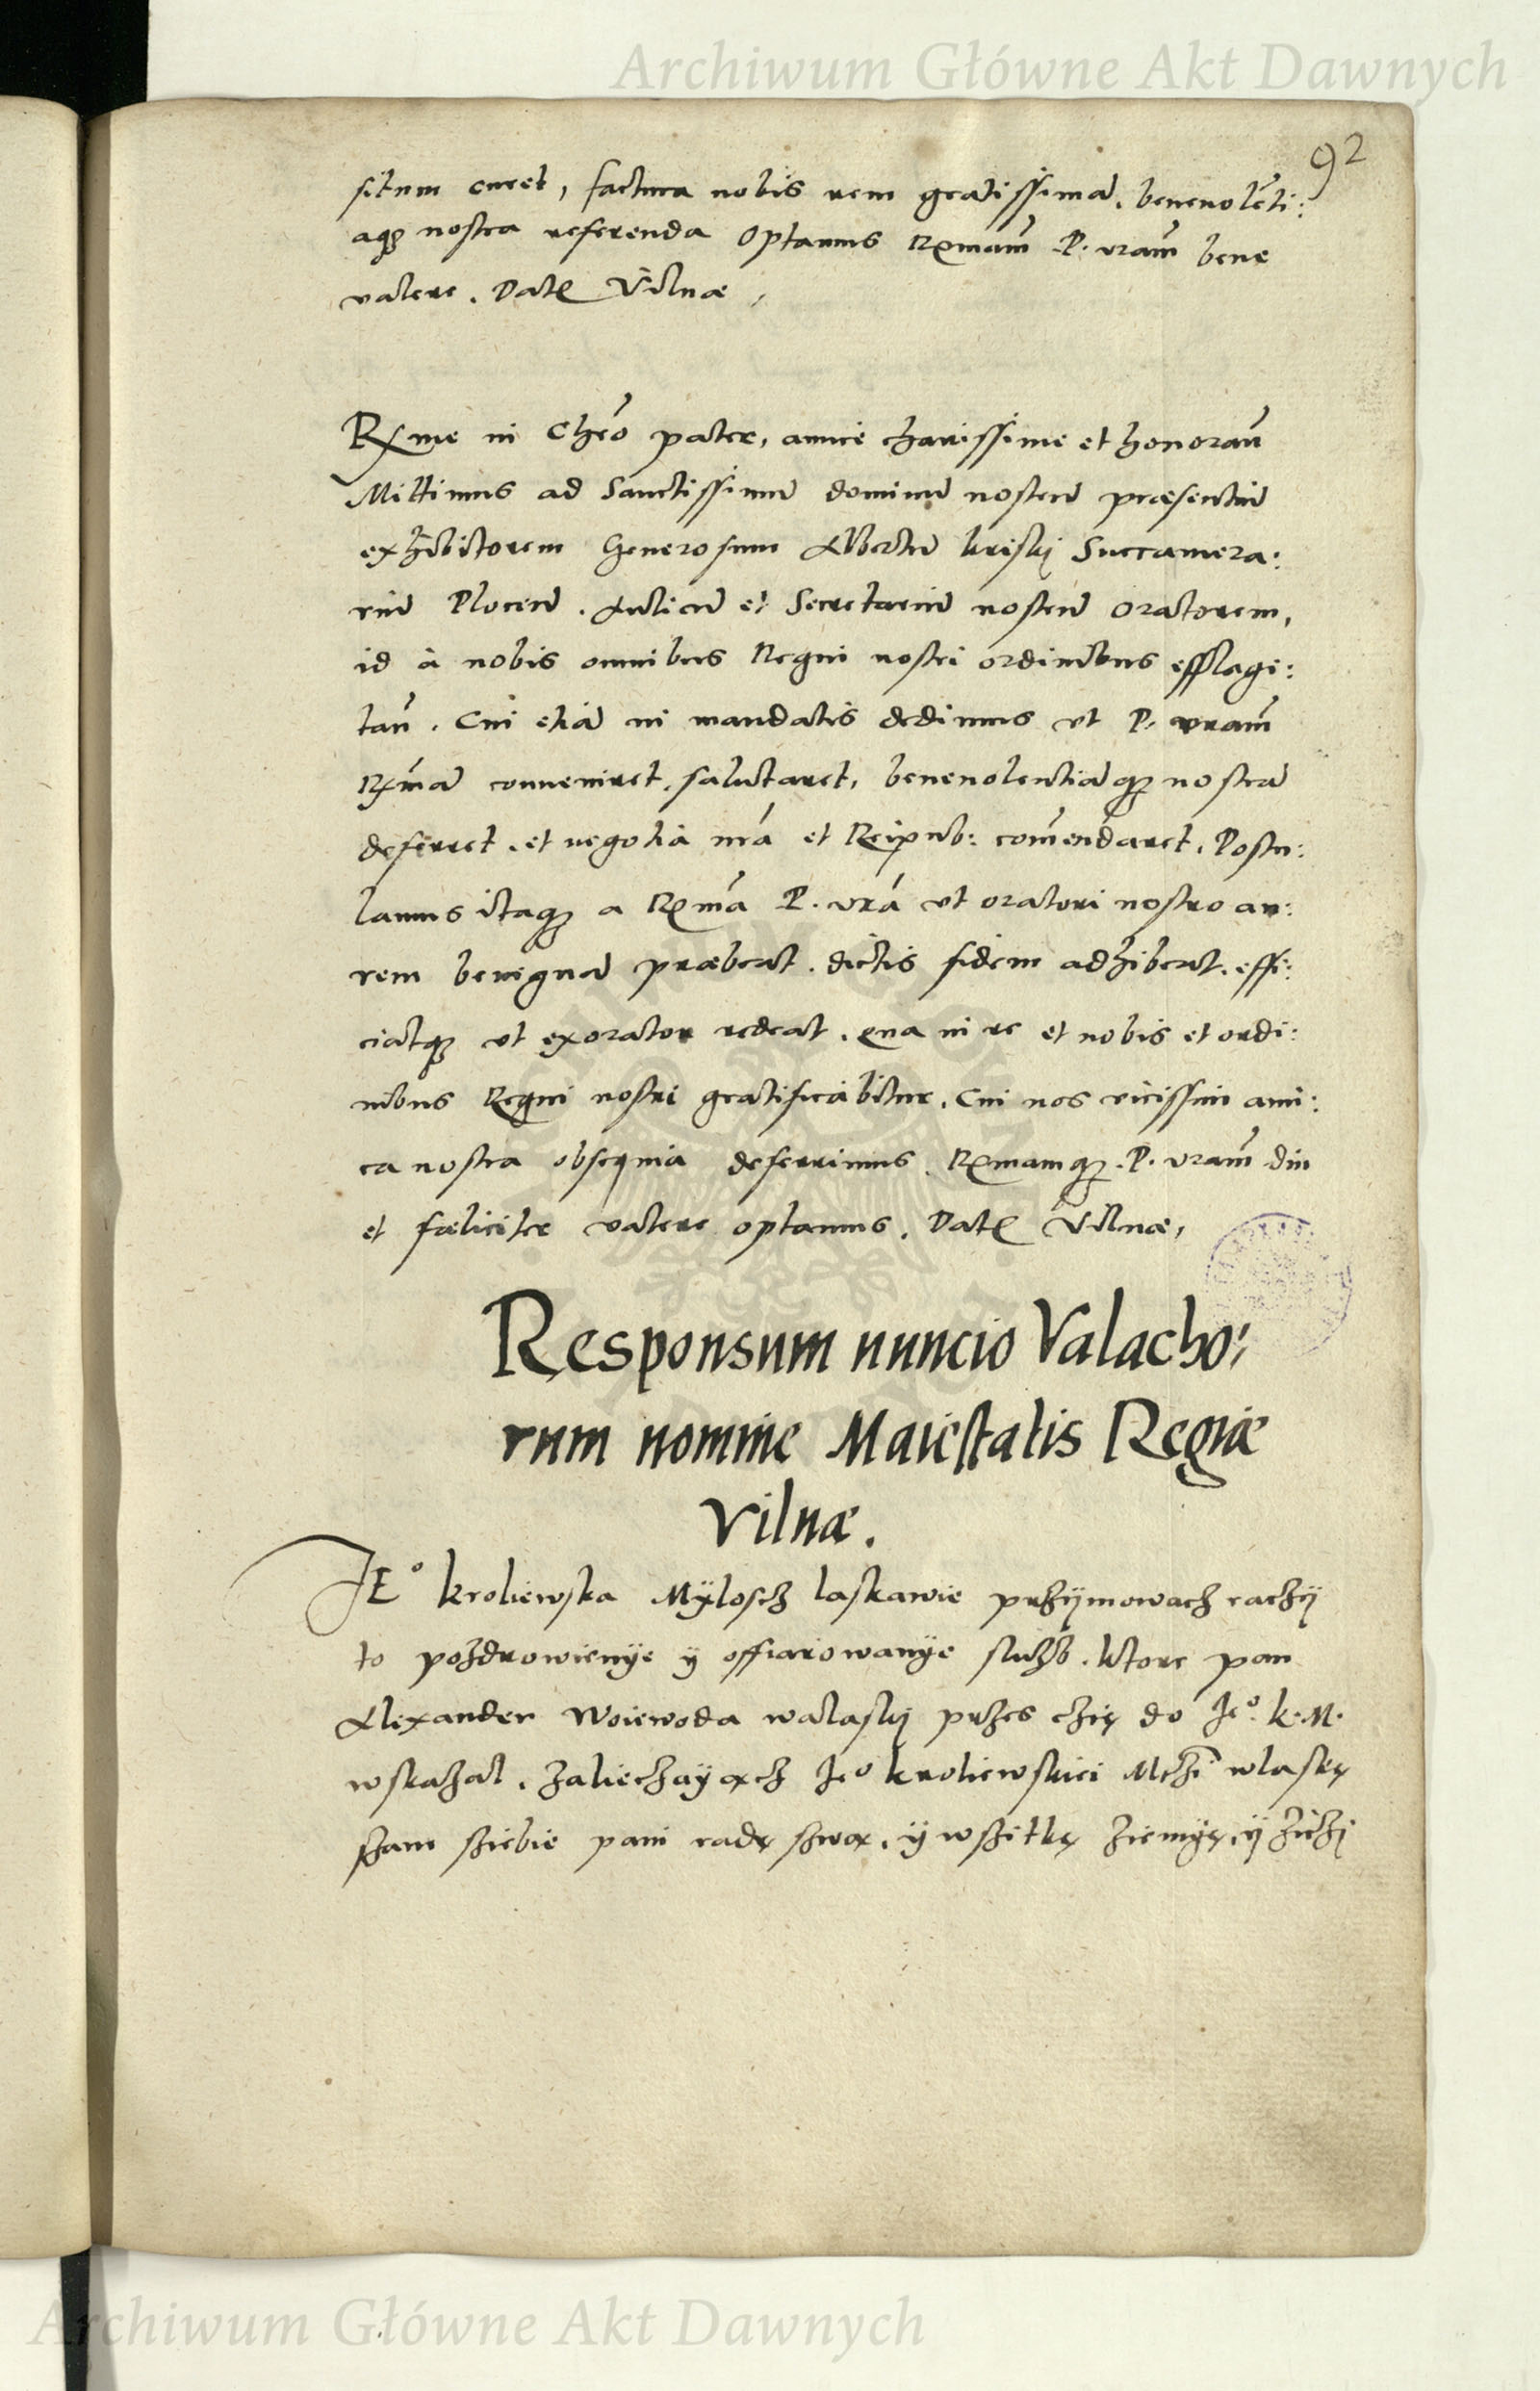 Archiwum Główne Akt Dawnych
92
situm curet, factura nobis rem gratissimā. beneuolēti:
aq꜄ nostra referenda Optamus Rx̃mam̄ P. vram̄ bene
valere. Datę Vilnæ,
Rx̃me in Chr̄o pater, amice charissime et honoran̄
Mittimus ad Sanctissimū dominū nostrū præsentiū
exhibitorem Generosum Albertū kriskj Succamera:
riū Plocen̄. Aulicū et Secretariū nostrū oratorem,
id à nobis omnibus Regni nostri ordinibus efflagi:
tan̄. Cui etiā in mandatis dedimus vt P. vram̄
Rx̃mā conueniret, salutaret, beneuolentiāq꜄ nostrā
deferret. et negotia nr̄a et Reipub: com̄endaret. Postu:
lamus itaq꜄ a Rx̃ma P. vrā vt oratori nostro au:
rem benegnā præbeat. dictis fidem adhibeat. effi:
ciatq꜄ vt exorator redeat. qua in re et nobis et ordi:
nibus Regni nostri gratificabitur. Cui nos vicissim ami:
ca nostra obsequia deferrimus. Rx̃mamq꜄. P. vram̄ diu
et fæliciter valere optamus. Datę Vilnæ,
Responsum nuncio Valacho:
rum nomine Maiestatis Regiæ
Vilnæ.
JEº kroliewska Mÿlosch laskawie przÿmowach raczÿ
to pozdrowienÿe ÿ offiarowanÿe sluzb. ktore pan
Alexander Woiewoda walaskj przes czię do Jeº. k. M.
wskazal. zaliechaÿącz Jeº kroliewskiei Mczi wlaskę
szam sziebie pani radę szwą. ÿ wszitkę ziemÿę, ÿ ziczj
Archiwum Główne Akt Dawnych